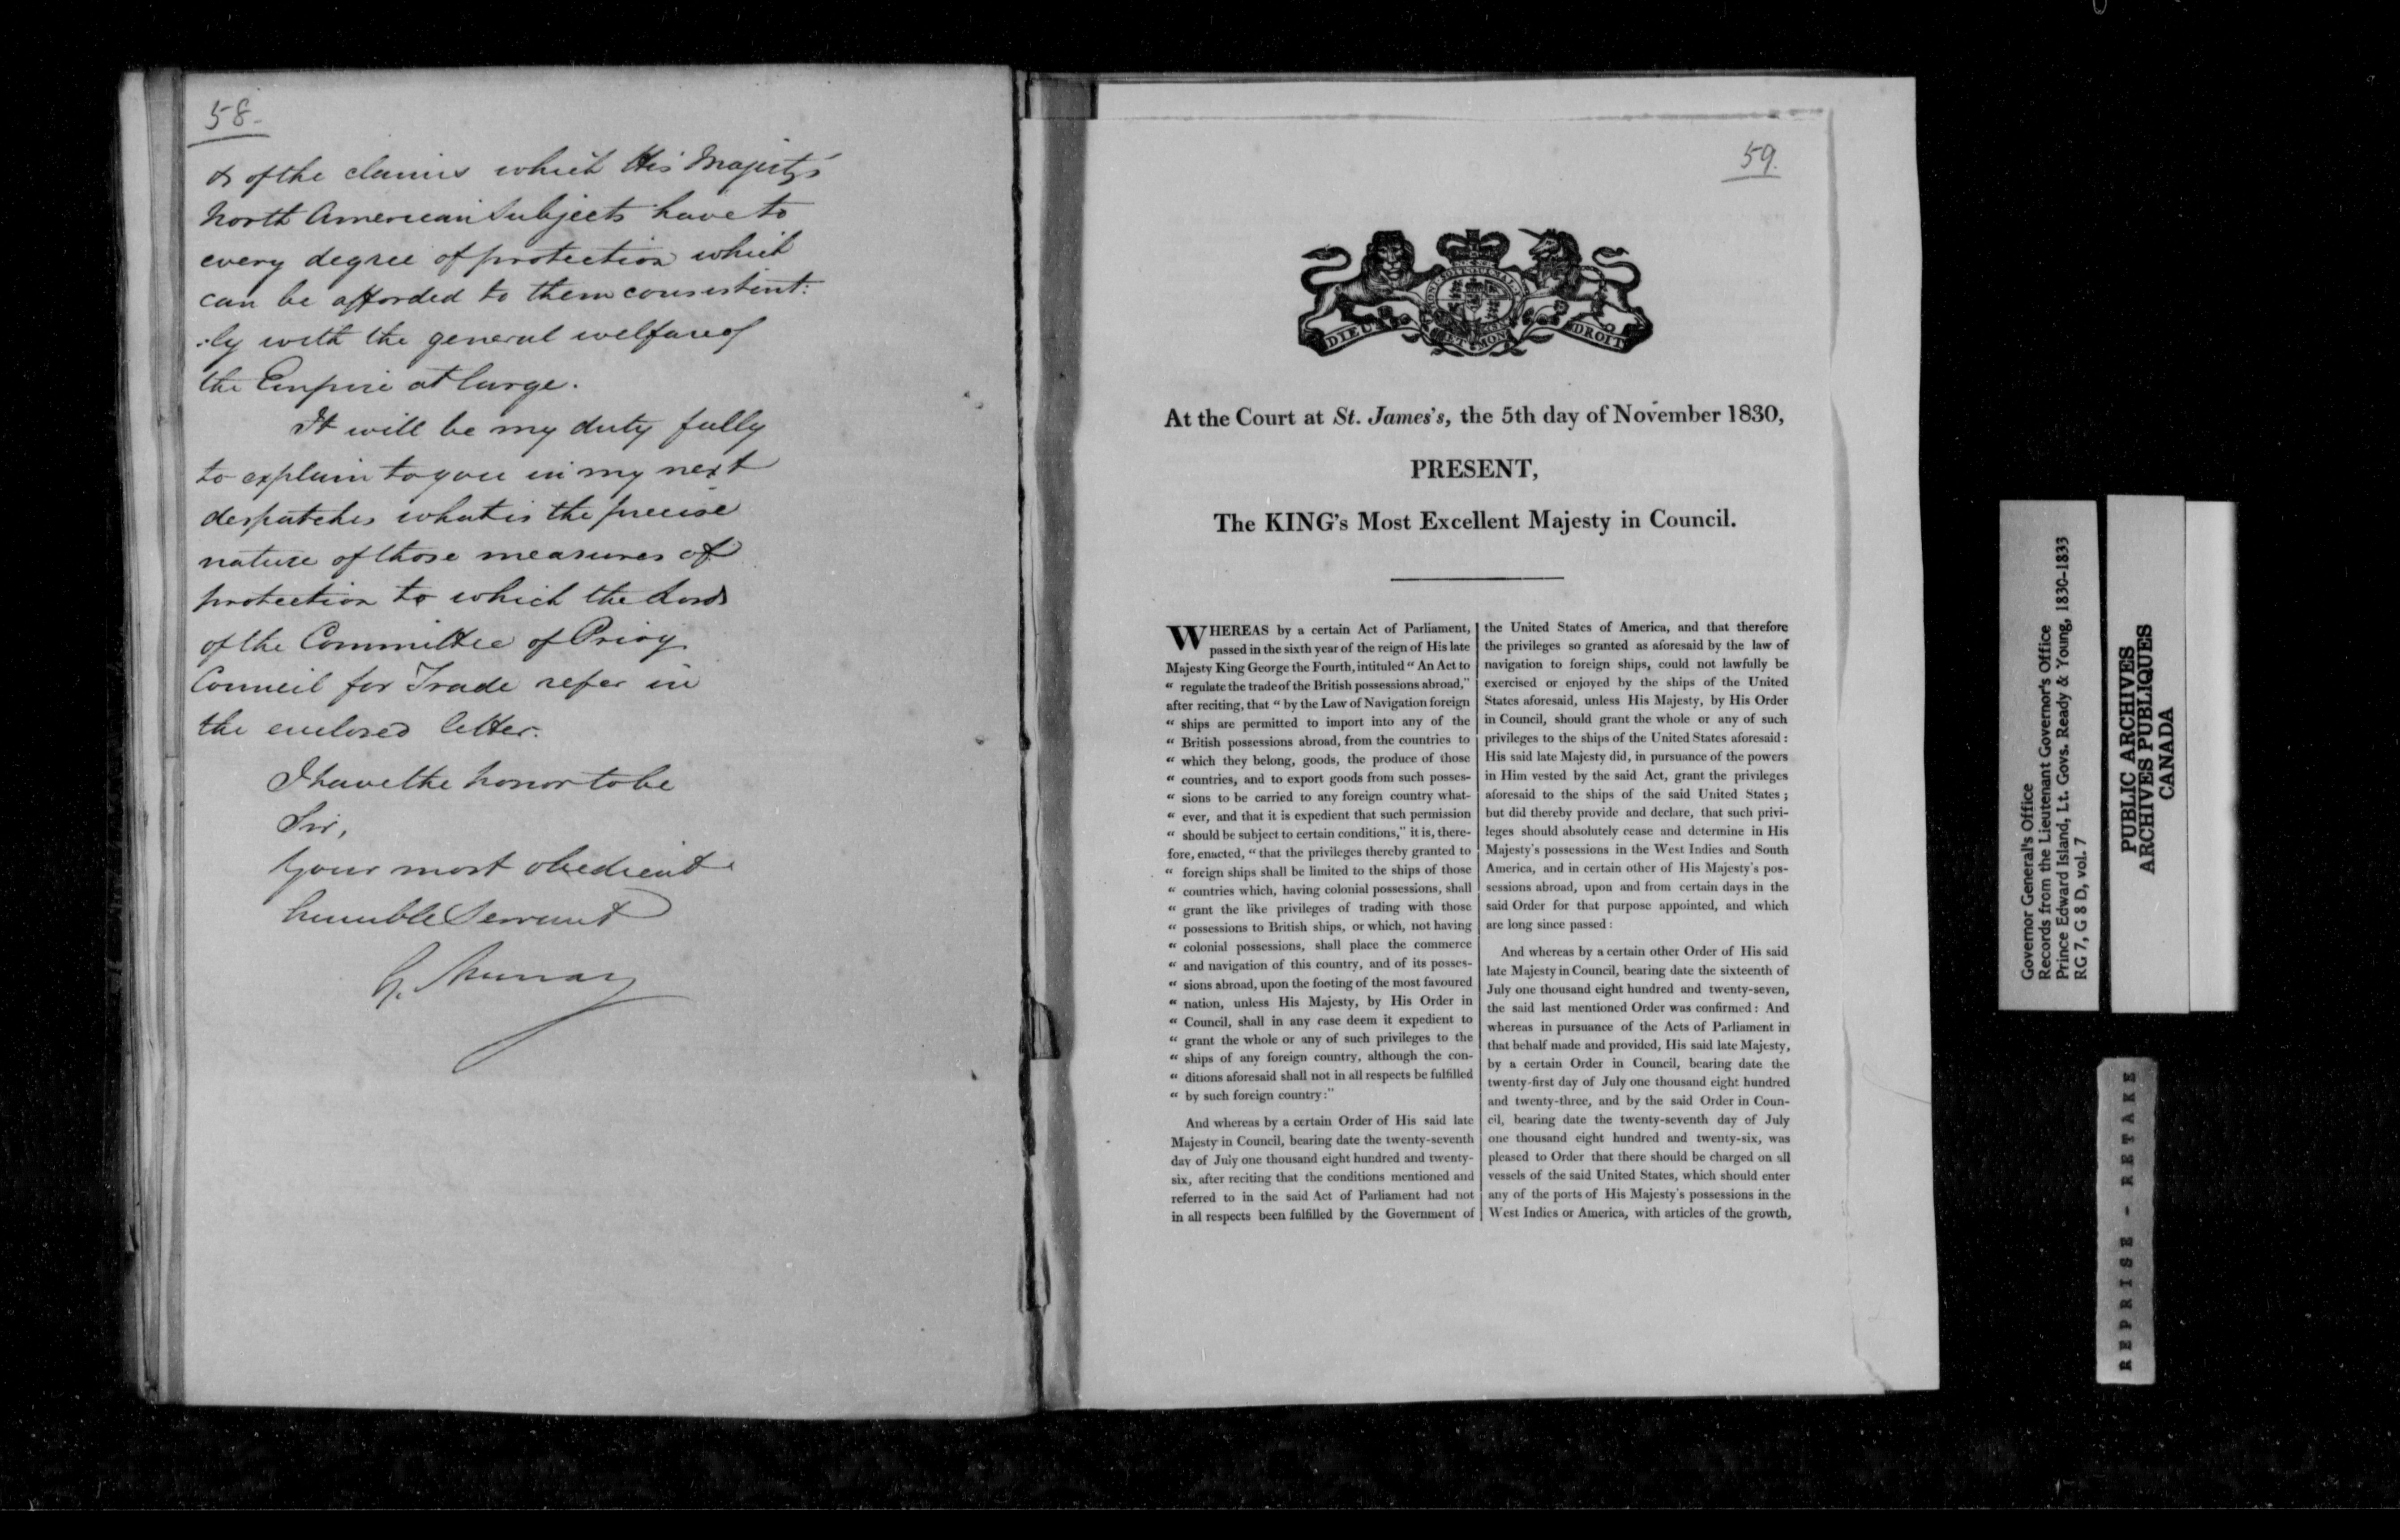 58.
& of the claims which His Majesty's
North American Subjects have to
every degree of protection which
can be afforded to them consistent:
:ly with the general welfare of
the Empire at large.
It will be my duty fully
to explain to you in my next
despatches what is the precise
nature of those measures of
protection to which the Lords
of the Committee of Privy
Council for Trade refer in
the enclosed letter.
I have the honor to be
Sir,
Your most obedient
humble Servant
G. Murray
59.
DIEU ET MON DROIT
At the Court at St. James's, the 5th day of November 1830,
PRESENT,
The KING's Most Excellent Majesty in Council.
WHEREAS by a certain Act of Parliament,
passed in the sixth year of the reign of His late
Majesty King George the Fourth, intituled “ An Act to
“ regulate the trade of the British possessions abroad,”
after reciting, that “ by the Law of Navigation foreign
“ ships are permitted to import into any of the
“ British possessions abroad, from the countries to
“ which they belong, goods, the produce of those
“ countries, and to export goods from such posses-
“ sions to be carried to any foreign country what-
“ ever, and that it is expedient that such permission
“ should be subject to certain conditions,” it is, there-
fore, enacted, “ that the privileges thereby granted to
“ foreign ships shall be limited to the ships of those
“ countries which, having colonial possessions, shall
“ grant the like privileges of trading with those
“ possessions to British ships, or which, not having
“ colonial possessions, shall place the commerce
“ and navigation of this country, and of its posses-
“ sions abroad, upon the footing of the most favoured
“ nation, unless His Majesty, by His Order in
“ Council, shall in any case deem it expedient to
“ grant the whole or any of such privileges to the
“ ships of any foreign country, although the con-
“ ditions aforesaid shall not in all respects be fulfilled
“ by such foreign country:”
And whereas by a certain Order of His said late
Majesty in Council, bearing date the twenty-seventh
day of July one thousand eight hundred and twenty-
six, after reciting that the conditions mentioned and
referred to in the said Act of Parliament had not
in all respects been fulfilled by the Government of
the United States of America, and that therefore
the privileges so granted as aforesaid by the law of
navigation to foreign ships, could not lawfully be
exercised or enjoyed by the ships of the United
States aforesaid, unless His Majesty, by His Order
in Council, should grant the whole or any of such
privileges to the ships of the United States aforesaid :
His said late Majesty did, in pursuance of the powers
in Him vested by the said Act, grant the privileges
aforesaid to the ships of the said United States ;
but did thereby provide and declare, that such privi-
leges should absolutely cease and determine in His
Majesty's possessions in the West Indies and South
America, and in certain other of His Majesty's pos-
sessions abroad, upon and from certain days in the
said Order for that purpose appointed, and which
are long since passed :
And whereas by a certain other Order of His said
late Majesty in Council, bearing date the sixteenth of
July one thousand eight hundred and twenty-seven,
the said last mentioned Order was confirmed : And
whereas in pursuance of the Acts of Parliament in
that behalf made and provided, His said late Majesty,
by a certain Order in Council, bearing date the
twenty-first day of July one thousand eight hundred
and twenty-three, and by the said Order in Coun-
cil, bearing date the twenty-seventh day of July
one thousand eight hundred and twenty-six, was
pleased to Order that there should be charged on all
vessels of the said United States, which should enter
any of the ports of His Majesty's possessions in the
West Indies or America, with articles of the growth,
Governor General's Office
Records from the Lieutenant Governor's Office
Prince Edward Island, Lt. Govs. Ready & Young, 1830-1833
RG 7, G 8 D, vol. 7
PUBLIC ARCHIVES
ARCHIVES PUBLIQUES
CANADA
REPRISE - RETAKE